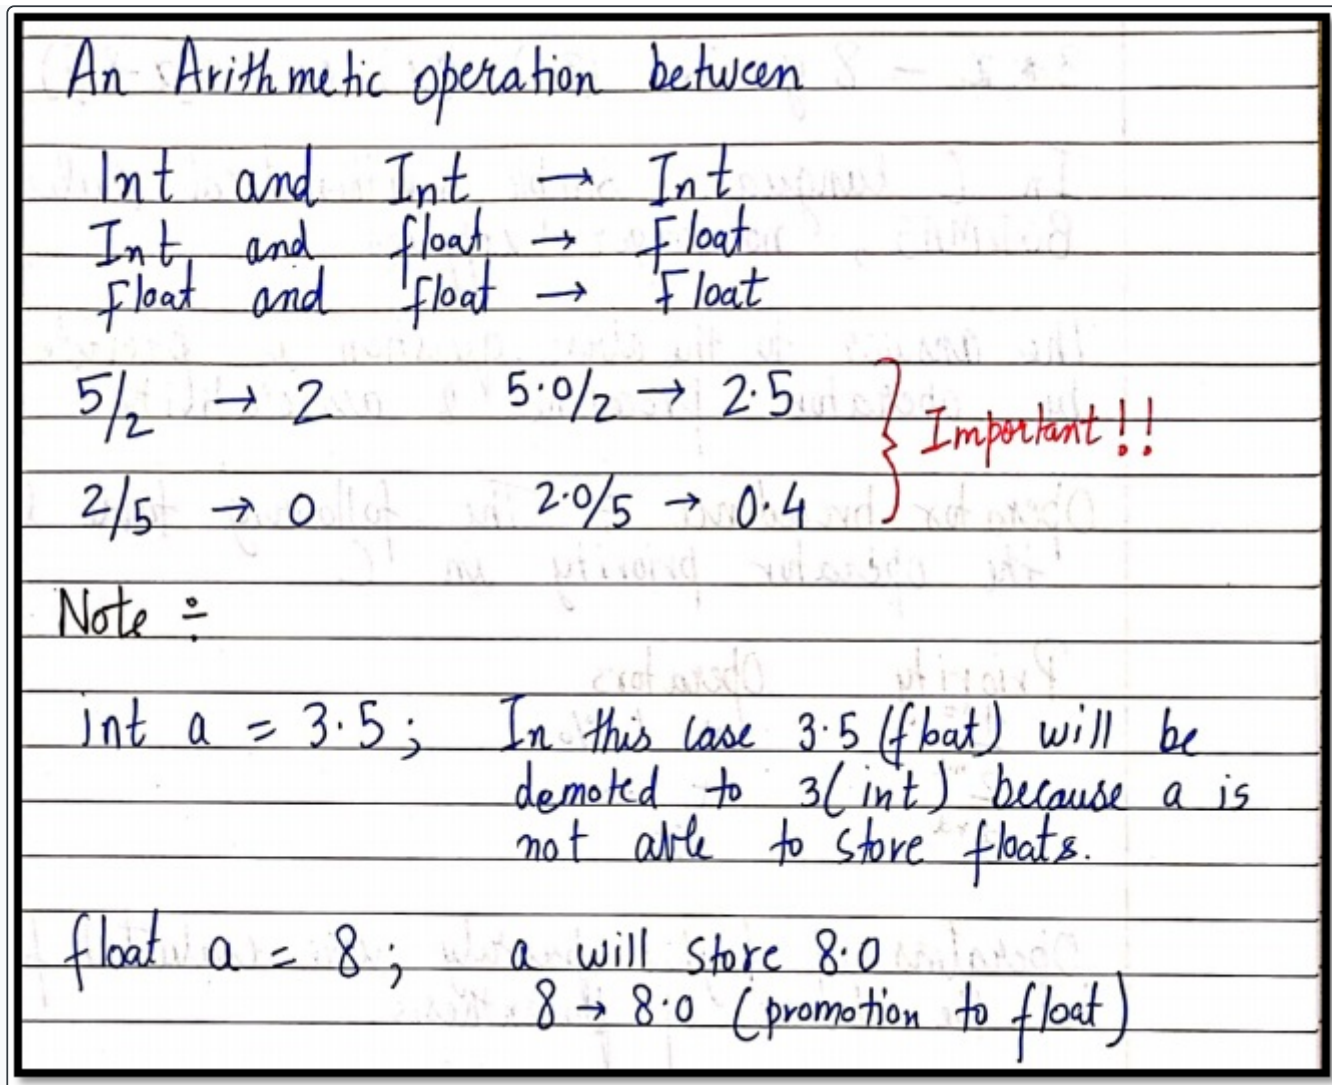 An Arithmetic operation between
Int and Int → Int
Int and float → Float
Float and float → Float
5/2 → 2 5.0/2 → 2.5
2/5 → 0 2.0/5 → 0.4
Important!!
Note ÷
int a = 3.5; In this case 3.5 (float) will be
demoted to 3(int) because a is
not able to store floats.
float a = 8; a will store 8.0
8 → 8.0 (promotion to float)